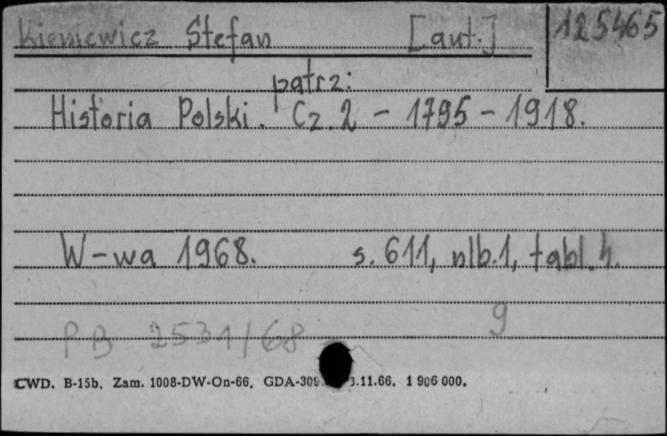 Kieniewicz Stefan [aut.] 125465
patrz:
Historia Polski. Cz. 2 - 1795-1918.
W-wa 1968. s. 611, nlb. 1, tabl. 4.
9
PB 2531/68
CWD. B-15b. Zam. 1008-DW-On-66. GDA-309 3.11.66. 1 906 000.